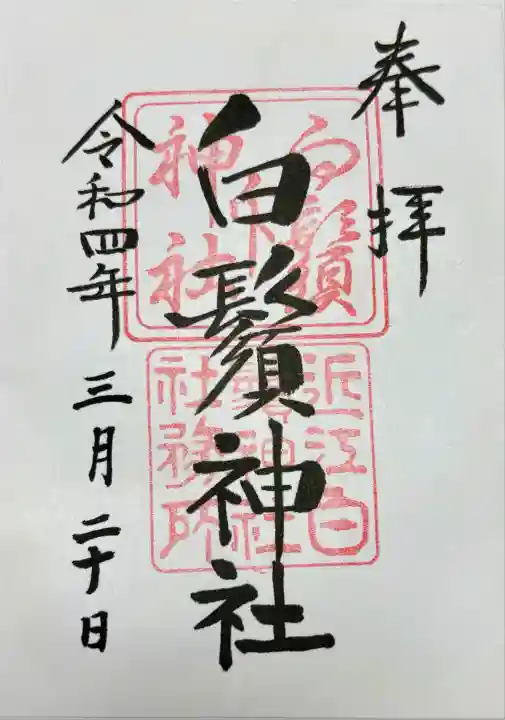 奉拝
白鬚神社
令和四年三月二十日
近江白
鬚神社
社務所